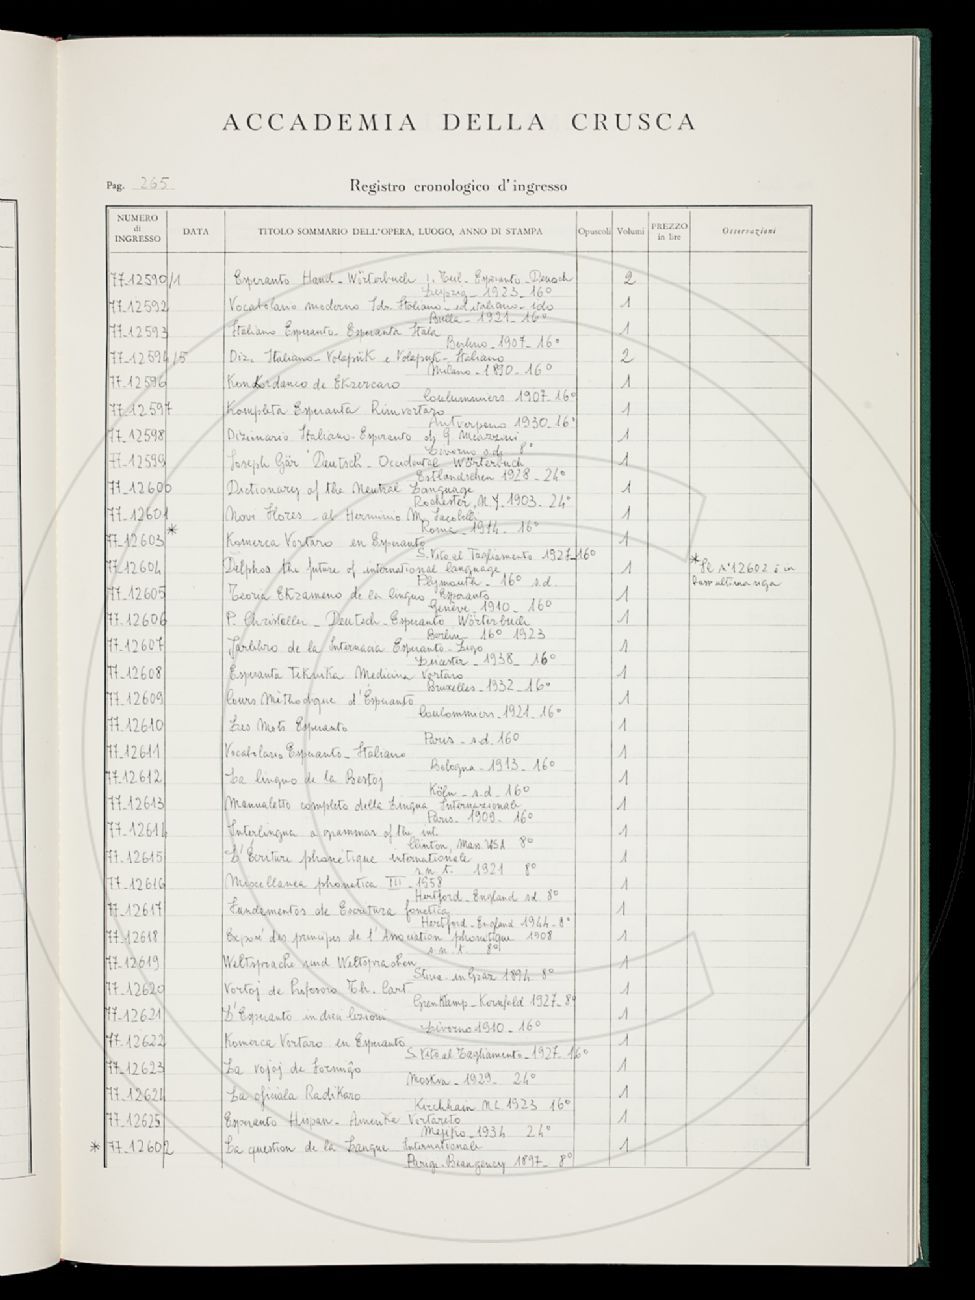 ACCADEMIA DELLA CRUSCA
Pag. 265
Registro cronologico d'ingresso
NUMERO di INGRESSO DATA TITOLO SOMMARIO DELL'OPERA, LUOGO, ANNO DI STAMPA Opuscoli Volumi PREZZO in lire Osservazioni
77-12590/1 Esperanto Hand-Wörterbuch 1. Teil-Esperanto-Deutsch 2
Leipzig-1923-16°
77-12592 Vocabolario moderno Ido-Italiano-ed italiano-ido 1
1921-16°
77-12593 Italiano Esperanto-Esperanta Itala 1
Berlino-1907-16°
77-12594/5 Diz. Italiano-Volapük e Volapük-Italiano 2
Milano-1890-16°
77-12596 Konkordanco de Ekzercaro 1
Coulommiers 1907-16°
77-12597 Kompleta Esperanta Rimvortaro 1
Antverpeno 1930-16°
77-12598 Dizionario Italiano-Esperanto di G. Meazzini 1
Livorno s.d. 8°
77-12599 Joseph Gär Deutsch-Occidental Wörterbuch 1
Estlandschen 1928-24°
77-12600 Dictionary of the Neutral Language 1
Rochester, N.Y. 1903-24°
77-12601 Novi Flores-ab Herminio M. 1
Roma-1914-16°
*
77-12603 Komerca Vortaro en Esperanto 1
S. Vito al Tagliamento 1927-16°
77-12604 Delphos the future of international language 1
* Il N° 12602 è in
Plymouth-16° s.d.
quest'ultima riga
77-12605 Teoria Ekzameno de la lingua Esperanto 1
Genève-1910-16°
77-12606 P. Christaller-Deutsch-Esperanto Wörterbuch 1
Berlin-16° 1923
77-12607 Jarlibro de la Internacia Esperanto-Ligo 1
1938-16°
77-12608 Esperanta Teknika Medicina Vortaro 1
Bruxelles-1932-16°
77-12609 Cours Méthodique d'Esperanto 1
Coulommiers-1921-16°
77-12610 Les Mots Esperanto 1
Paris-s.d. 16°
77-12611 Vocabolario Esperanto-Italiano 1
Bologna-1913-16°
77-12612 La lingvo de la Bestoj 1
Köln-s.d-16°
77-12613 Manualetto completo della Lingua Internazionale 1
Paris-1909-16°
77-12614 Interlingua a grammar of the int. 1
Clinton, Mass. USA 8°
77-12615 L'Écriture phonétique internationale 1
s.n.t. 1921 8°
77-12616 Miscellanea phonetica III-1958 1
Hertford-England s.d. 8°
77-12617 Fundamentos de Escritura fonetica 1
Hertford-England 1944-8°
77-12618 Exposé des principes de l'Association phonétique 1908 1
s.n.t. 8°
77-12619 Weltsprache und Weltsprachen 1
1894-8°
77-12620 Vortoj de Profesoro Th. Cart 1
Grenkamp-Kornfeld 1927-8°
77-12621 L'Esperanto in dieci lezioni 1
Livorno 1910-16°
77-12622 Komerca Vortaro en Esperanto 1
S. Vito al Tagliamento-1927-16°
77-12623 La vojoj de Formiĝo 1
Moskva-1929-24°
77-12624 La oficiala Radikaro 1
Kirchhain N.L. 1923 16°
77-12625 Esperanto Hispan-Amerika Vortareto 1
Mejiko-1934 24°
* 77-12602 La question de la Langue Internationale 1
Parigi-Beaugency 1897-8°